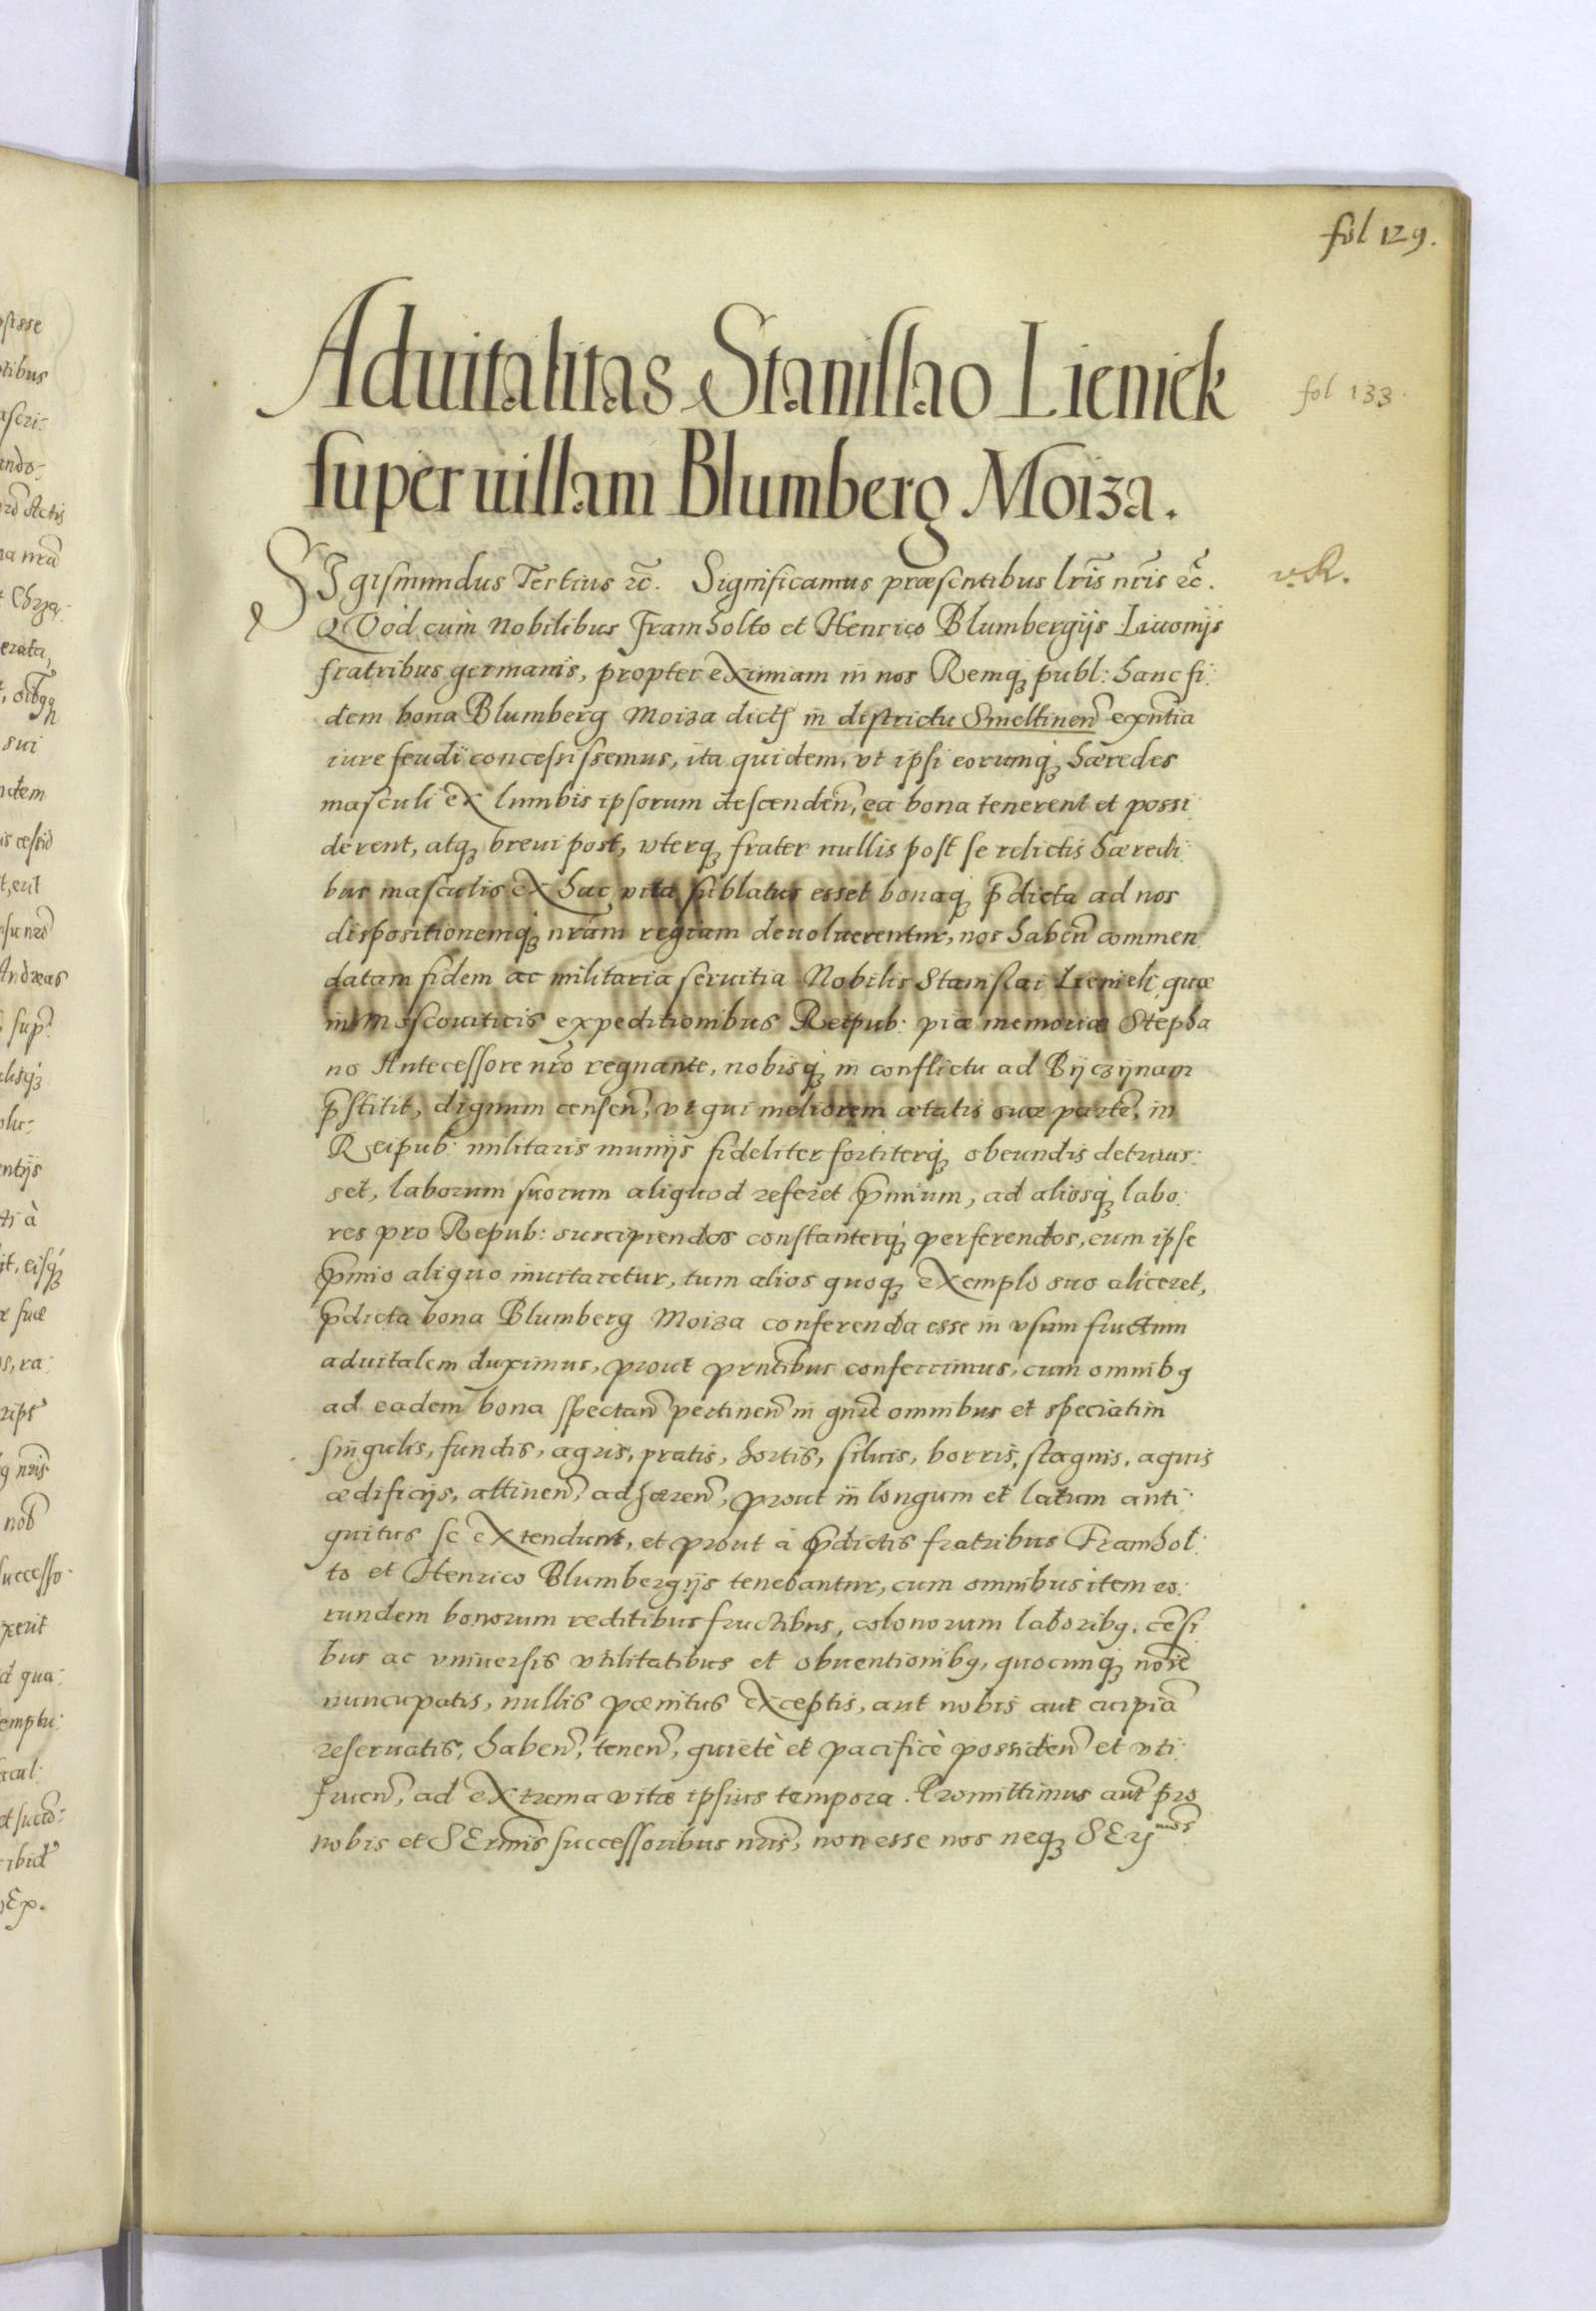 fol 129.
Aduitalitas Stanislao Lieniek
fol 133.
super uillam Blumberg Moiza.
SIgismundus Tertius &c̃. Significamus præsentibus lr̃is nr̃is &c̃.
v. R.
QVod cùm Nobilibus Framholto et Henrico Blumbergijs Liuonijs
fratribus germanis, propter eximiam in nos Remq3 publ: hanc fi:
dem bona Blumberg Moiza dict3 in districtu Smeltinen̄ exn̄tia
iure feudi concessissemus, ita quidem, vt ipsi eorumq3 hæredes
masculi ex lumbis ipsorum descenden̄, ea bona tenerent et possi:
derent, atq3 breui post, vterq3 frater nullis post se relictis hæredi:
bus masculis ex hac vita sublatus esset bonaq3 p̄dicta ad nos
dispositionemq3 nr̃am regiam deuoluerentur, nos haben̄ commen:
datam fidem ac militaria seruitia Nobilis Stanislai Lieniek, quæ
in Moscouiticis expeditionibus Reipub: piæ memoriæ Stepha
no Antecessore nr̃o regnante, nobisq3 in conflictu ad Bijczijnam
p̄stitit, dignum censen̄, vt qui meliorem ætatis suæ partē, in
Reipub: militaris munijs fideliter fortiterq3 obeundis detriuis:
set, laborum suorum aliquod referet p̄mium, ad aliosq3 labo:
res pro Repub: suscipiendos constanterq3 perferendos, cum ipse
p̄mio aliquo inuitaretur, tum alios quoq3 exemplo suo aliceret,
p̄dicta bona Blumberg Moiza conferenda esse in vsum fructum
aduitalem duximus, prout prn̄tibus conferrimus, cum omnib9
ad eadem bona spectan̄ pertinen̄ in gn̄re omnibus et speciatim
singulis, fundis, agris, pratis, hortis, siluis, borris, stagnis, aquis
ædificijs, attinen̄, adhæren̄, prout in longum et latum anti:
quitus se extendunt, et prout à p̄dictis fratribus Framhol:
to et Henrico Blumbergijs tenebantur, cum omnibus item eo:
rundem bonorum reditibus fructibus, colonorum laborib9, cēsi
bus ac vniuersis vtilitatibus et obuentionib9, quocunq3 noīe
nuncupatis, nullis pænitus exceptis, aut nobis aut cuipiā
reseruatis, haben̄, tenen̄, quietè et pacificè possiden̄ et vti
fruen̄, ad extrema vitæ ipsius tempora. Promittimus aut̄ pro
nobis et SErmis successoribus nr̃is, non esse nos neq3 SEr̃mos